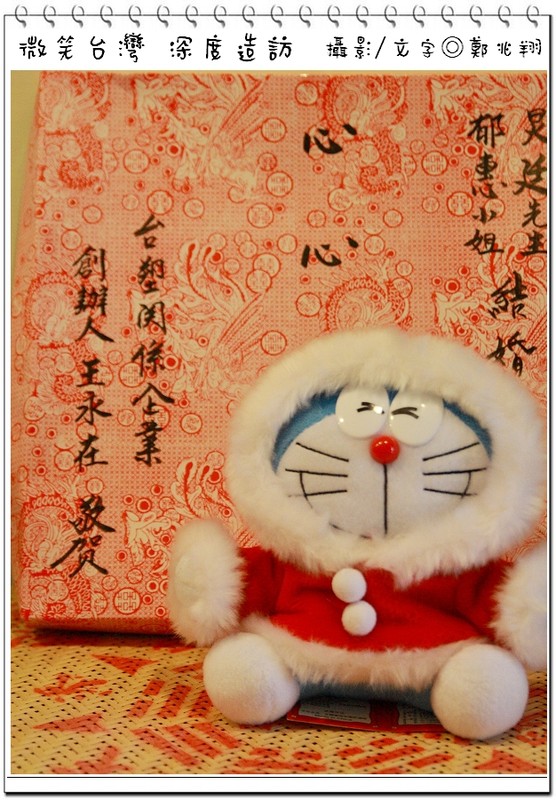 微笑台灣 深度造訪 攝影/文字◎鄭兆翔
炅廷先生
郁惠小姐
結婚
心
心
台塑関係企業
創辦人王永在 敬賀